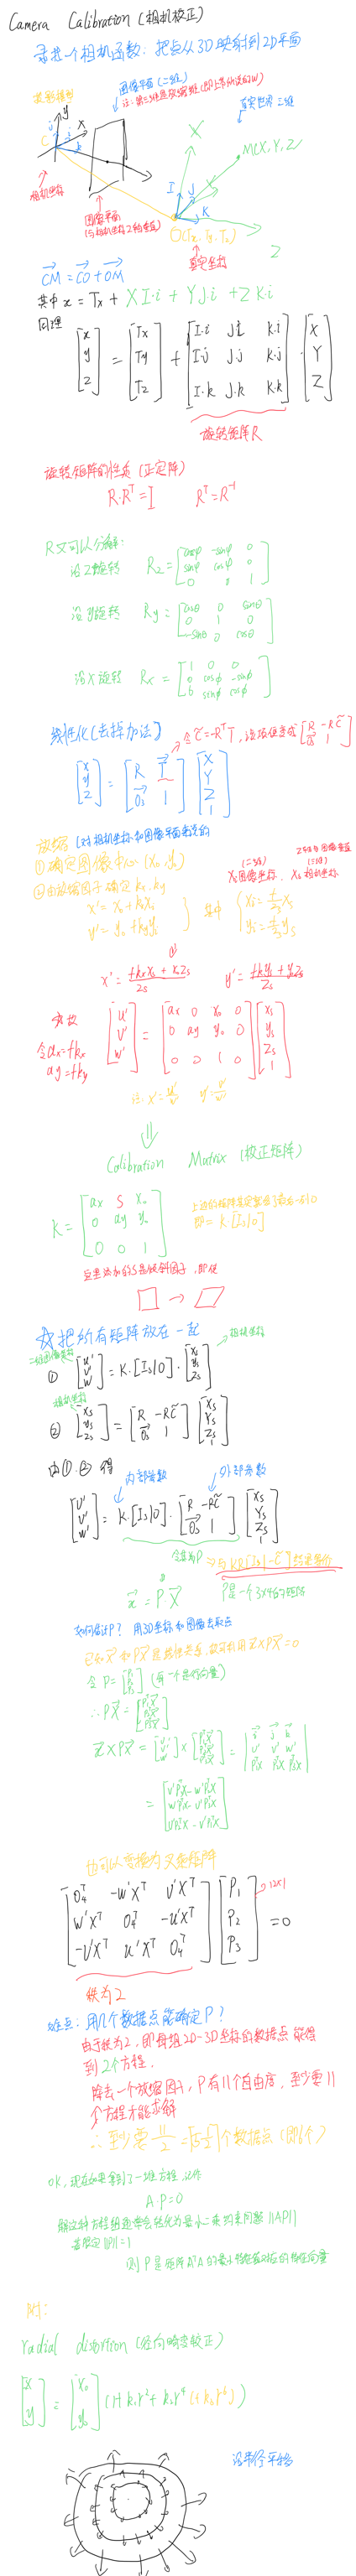 Camera Calibration (相机校正)
寻找一个相机函数: 把点从3D映射到2D平面
投影模型
图像平面 (二维)
真实世界 三维
y
x
j
i
k
C
X
M(X, Y, Z)
I
J
K
Y
Z
O(Tx, Ty, Tz)
相机坐标
图像平面
(与相机坐标Z轴垂直)
真实坐标
CM = CO + OM
其中 x = Tx + X I·i + Y J·i + Z K·i
同理
[x y z] = [Tx Ty Tz] + [I·i J·i K·i
I·j J·j K·j
I·k J·k K·k] · [X Y Z]
旋转矩阵R
旋转矩阵的性质 (正定阵)
R·Rᵀ = I Rᵀ = R⁻¹
R又可以分解:
沿Z旋转 Rz = [cosφ -sinφ 0
sinφ cosφ 0
0 0 1]
沿y旋转 Ry = [cosθ 0 sinθ
0 1 0
-sinθ 0 cosθ]
沿X旋转 Rx = [1 0 0
0 cosϕ -sinϕ
0 sinϕ cosϕ]
线性化 (去掉加法)
令 C̃ = -RᵀT, 该项但变成 [R -RC̃
0₃ 1]
[x y z] = [R T
0₃ 1] [X Y Z 1]
放缩 (对相机坐标和图像平面来说的)
① 确定图像中心 (x₀, y₀)
② 由放缩因子确定 kx, ky
x' = x₀ + kxxs
y' = y₀ + kyys
其中
(二维)
Xs图像坐标, Xs相机坐标
(三维)
x' = (fkxxs + x₀zs)/zs y' = (fkyys + y₀zs)/zs
令αx = fkx
αy = fky
[u' v' w'] = [αx 0 x₀ 0
0 αy y₀ 0
0 0 1 0] [xs ys zs 1]
注: x' = u'/w' y' = v'/w'
Calibration Matrix (校正矩阵)
K = [αx S x₀
0 αy y₀
0 0 1]
即 = K[I₃|0]
☆ 把所有矩阵放在一起
二维图像坐标
相机坐标
① [u' v' w'] = K·[I₃|0]·[xs ys zs 1]
相机坐标
② [xs ys zs 1] = [R -RC̃
0₃ 1] [Xs Ys Zs 1]
由①② 得
内部参数 外部参数
[u' v' w'] = K·[I₃|0]·[R -RC̃
0₃ 1] [Xs Ys Zs 1]
令其为P
⇒ 与KR[I₃|-C̃]
P是一个3x4的矩阵
x = P X
如何估计P? 用3D坐标和图像去取点
令 P = (每一个是行向量)
∴ PX =
x × PX = [u' v' w'] × = | i j k
u' v' w'
P₁X P₂X P₃X |
= [v'P₃X - w'P₂X
w'P₁X - u'P₃X
u'P₂X - v'P₁X]
也可以变换为叉乘矩阵
[0₄ᵀ -w'Xᵀ v'Xᵀ
w'Xᵀ 0₄ᵀ -u'Xᵀ
-v'Xᵀ u'Xᵀ 0₄ᵀ] [P₁ P₂ P₃] = 0
12x1
秩为2
难点: 用几个数据点能确定P?
由于秩为2, 即每组2D-3D坐标的数据点 能得
到2个方程,
除去一个放缩因子, P有11个自由度, 至少要11
个方程才能求解
∴ 至少要 11/2 = ⌈5½⌉ 个数据点 (即6个)
OK, 现在如果拿到了一堆方程, 记作
A·P = 0
解这种方程组通常会转化为最小二乘约束问题 ||AP||
若限定 ||P|| = 1
则 P 是矩阵AᵀA的最小特征值对应的特征向量
附:
radial distortion (径向畸变较正)
[x y] = [x₀ y₀] (1 + k₁r² + k₂r⁴ (+ k₃r⁶))
沿半径平移